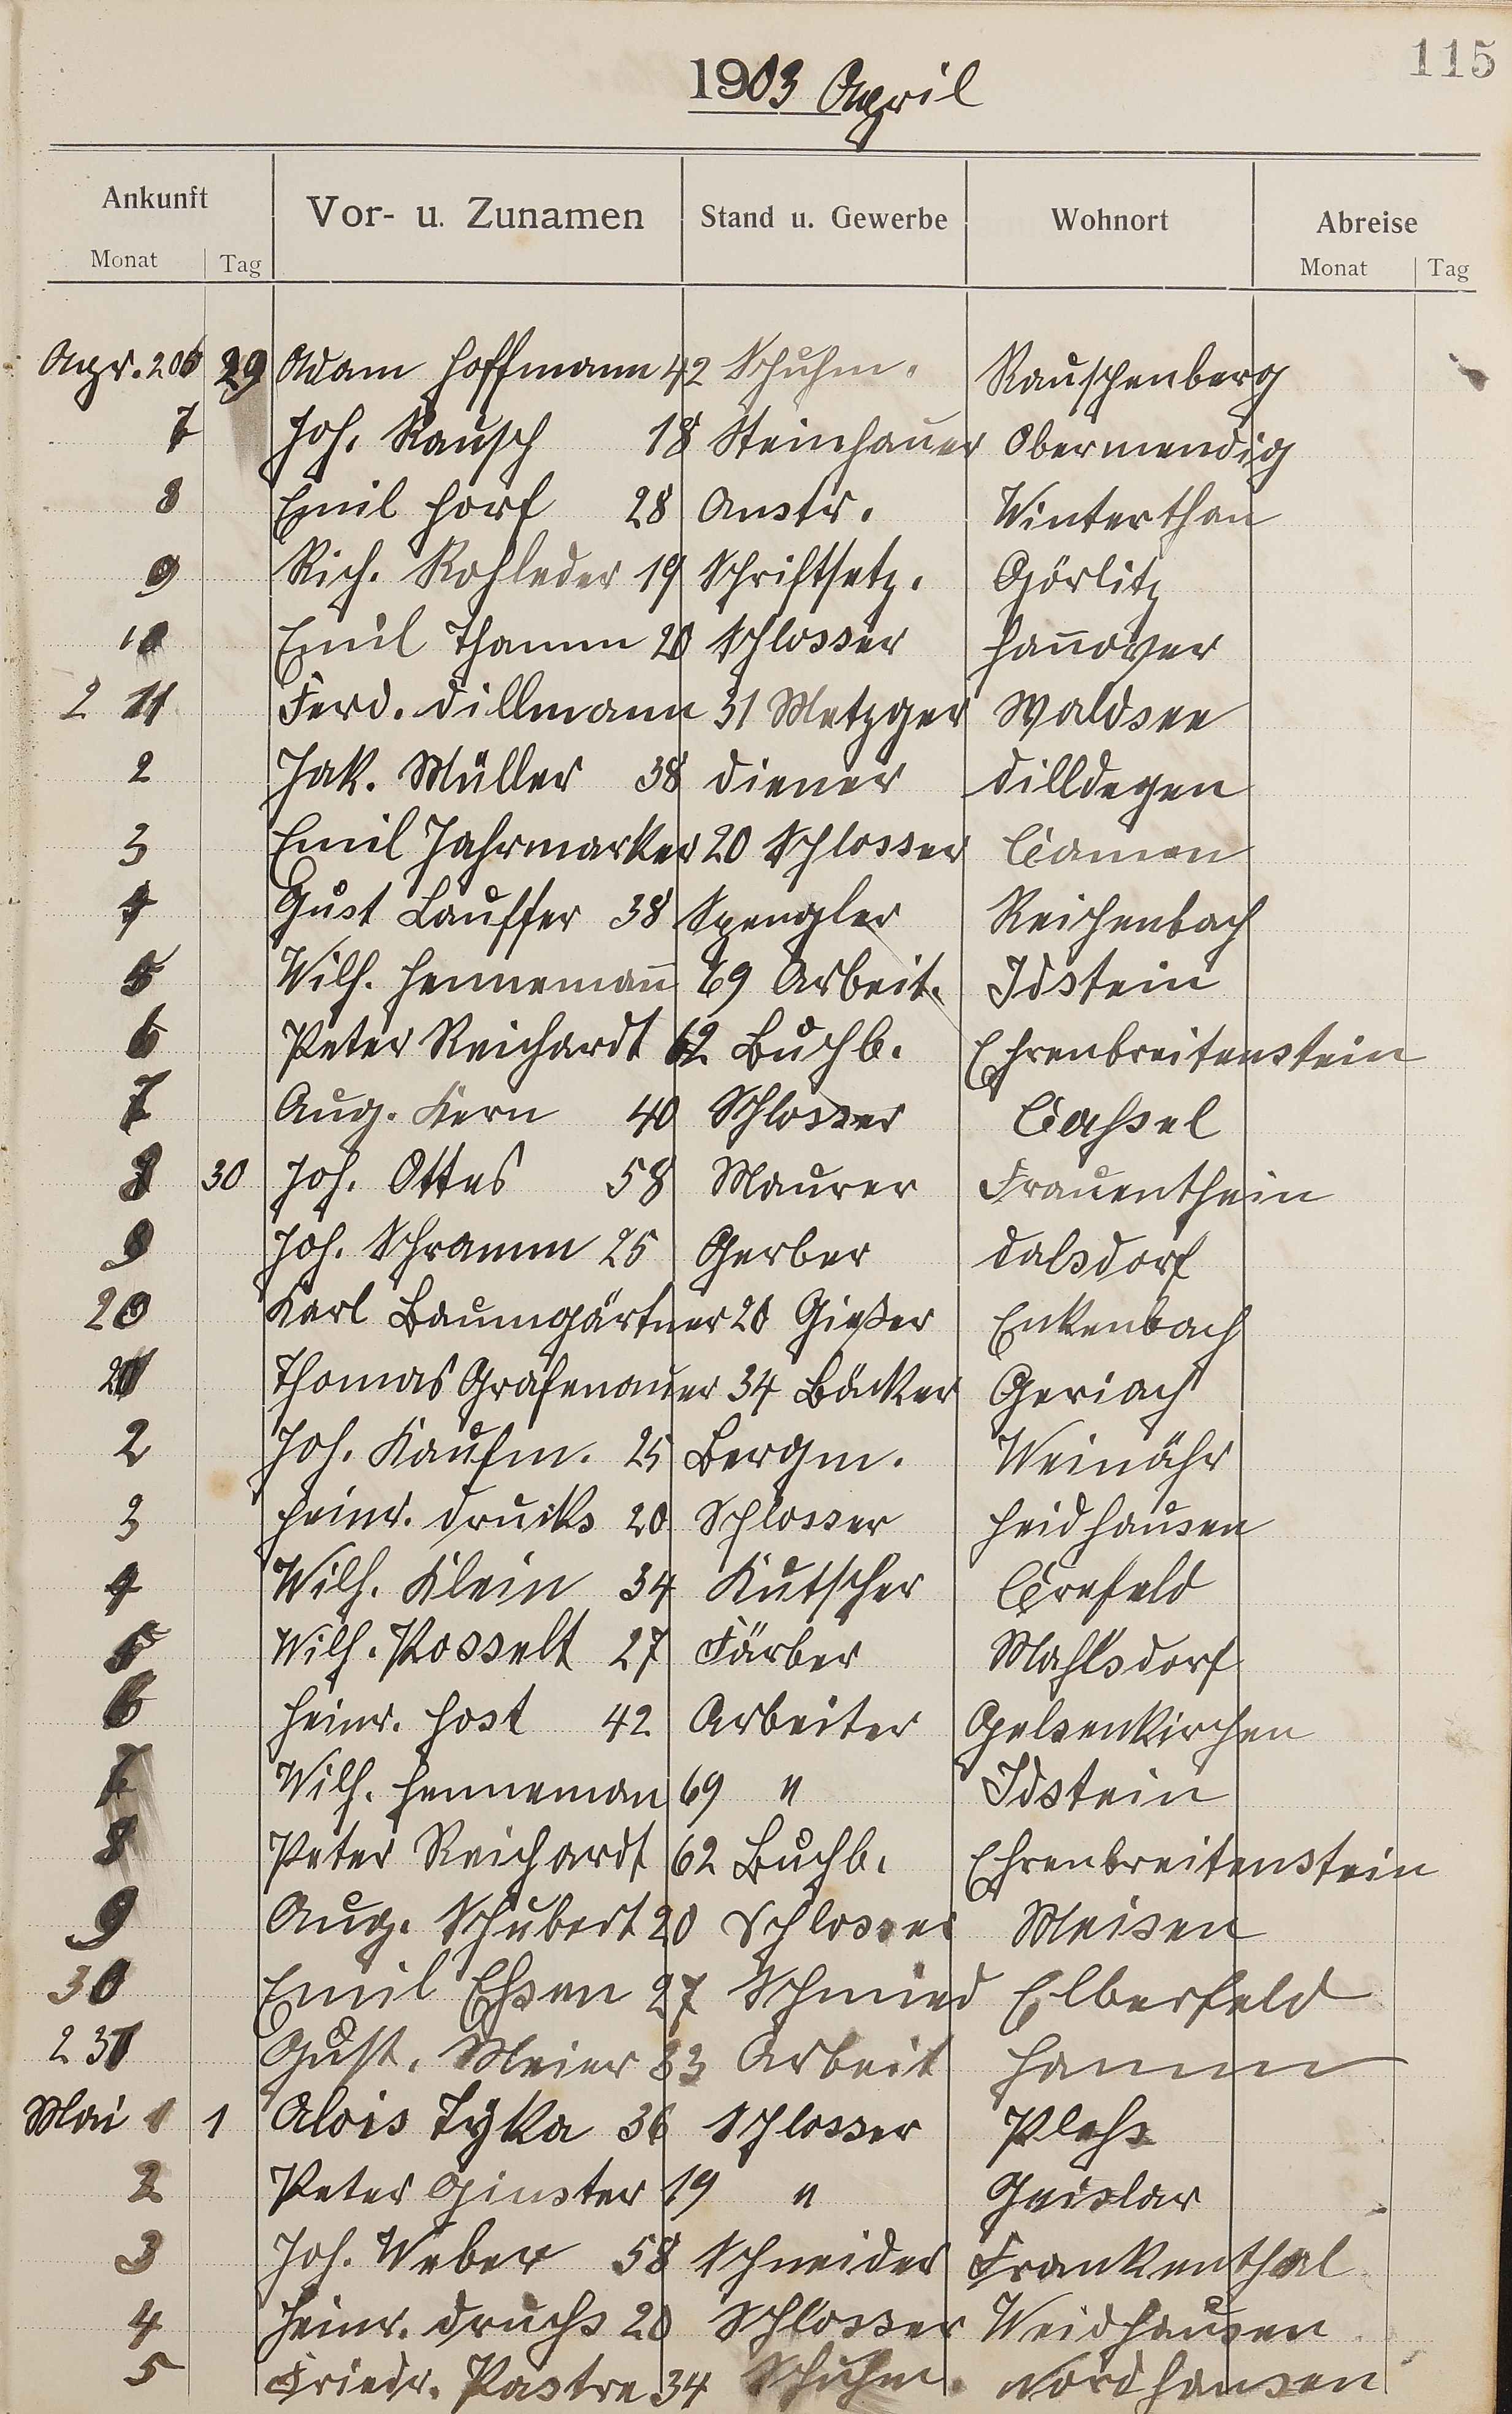 115
1903 April
Ankunft Vor- u. Zunamen Stand u. Gewerbe Wohnort Abreise
Monat Tag Monat Tag
Apr. 206 29 Adam Hoffmann 42 Schuhm. Rauschenberg
7 Joh. Rausch 18 Steinhauer Obermendig
8 Emil Horf 28 Anstr. Winterthau
9 Rich. Rohleder 19 Schriftsetz. Görlitz
10 Emil Thamm 20 Schlosser Hannover
2 11 Ferd. Dillmann 31 Metzger Waldsee
2 Jak. Müller 38 Diener Dilldegen
3 Emil Jahrmarker 20 Schlosser Camen
4 Gust Lauffer 38 Spengler Reichenbach
5 Wilh. Hennemann 69 Arbeit. Idstein
6 Peter Reichardt 62 Buchb. Ehrenbreitenstein
7 Aug. Kern 40 Schlosser Cassel
8 30 Joh. Ottes 58 Maurer Frauenthein
9 Joh. Schramm 25 Gerber Dalsdorf
20 Karl Baumgärtner 20 Gießer Enkenbach
21 Thomas Gräfenauer 34 Bäcker Geriach
2 Joh. Kaufm. 25 Bergm. Weinähr
3 Heinr. Druiks 20 Schlosser Heidhausen
4 Wilh. Klein 34 Kutscher Crefeld
5 Wilh. Posselt 27 Färber Mahlsdorf
6 Heinr. Host 42 Arbeiter Gelsenkirchen
7 Wilh. Henneman 69 " Idstein
8 Peter Reichardt 62 Buchb. Ehrenbreitenstein
9 Aug. Schubert 20 Schlosser Meisen
30 Emil Essen 27 Schmied Elberfeld
2 31 Gust. Meier 33 Arbeit Hamm
Mai 1 1 Alois Tyka 36 Schlosser Pless
2 Peter Ginster 19 " Geislar
3 Joh. Weber 58 Schneider Frankenthal
4 Heinr. Druchs 20 Schlosser Weidhausen
5 Friedr. Pastre 34 Schuhm. Nordhausen